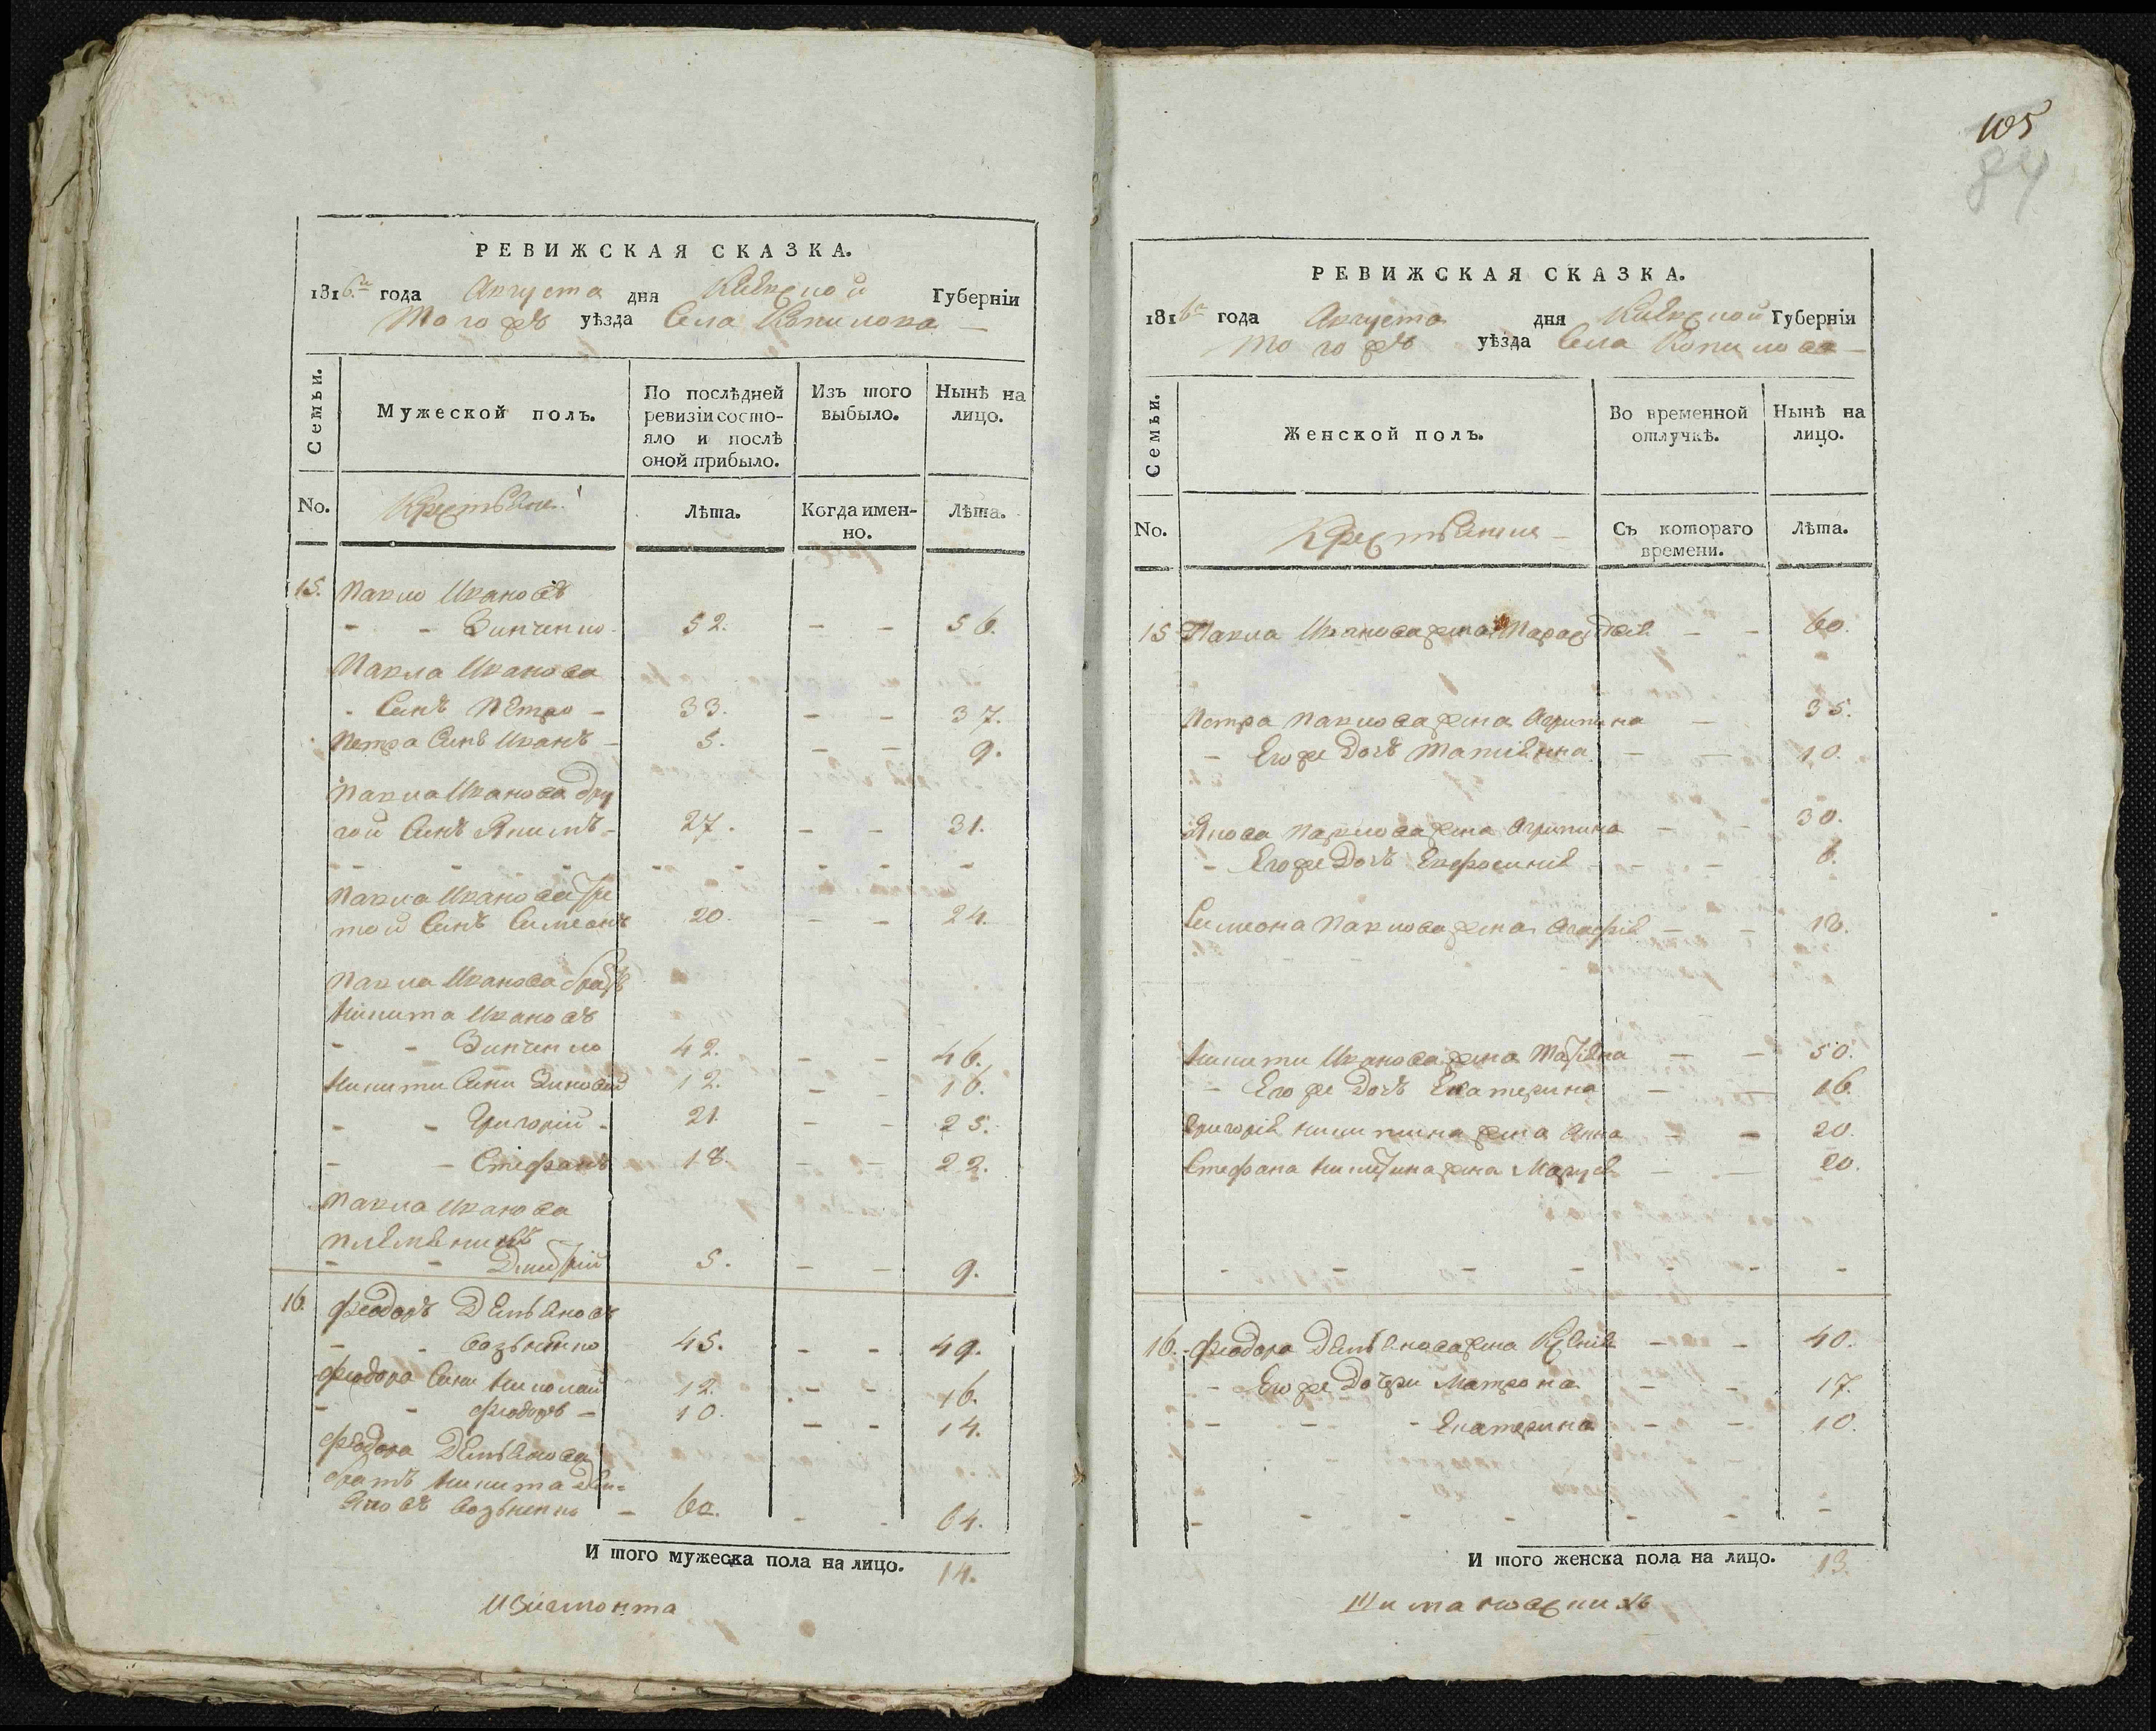 РЕВИЖСКАЯ СКАЗКА.
1816.го года Августа дня Киевской Губерніи
Того жъ уѣзда Села Копилова
Семьи.
Мужеской полъ.
По послѣдней ревизіи состо-
яло и послѣ
оной прибыло.
Изъ того
выбыло.
Нынѣ на
лицо.
No.
Крестьяне
Лѣта.
Когда имен-
но.
Лѣта.
15. Павло Ивановъ
- - Зинченко 52. - - 56.
Павла Иванова
- Синъ Петро - 33. - - 37.
Петра Синъ Иванъ - 5. - - 9.
Павла Иванова дру
гой Синъ Якимъ - 27. - - 31.
- - - - - - - - -
Павла Иванова тре
той Синъ Симеонъ 20. - - 24.
Павла Иванова братъ
Никита Ивановъ
- - Зинченко 42. - - 46.
Никити Сини Зиновій 12. - - 16.
- - Григорій - 21. - - 25.
- - Стефанъ 18. - - 22.
Павла Иванова
племѣникъ
- - Дмитрій 5. - - 9.
16. Феодоръ Демьяновъ
- - 45. - - 49.
Феодора Сини Николай 12. - - 16.
- - Феодоръ - 10. - - 14.
Феодора Демьянова
братъ Никита Дем-
яновъ - 60. - - 64.
И того мужеска пола на лицо. 14.
105
84
РЕВИЖСКАЯ СКАЗКА.
1816го года Августа дня Киевской Губерніи
Того жъ уѣзда Села Копилова
Семьи.
Женской полъ.
Во временной
отлучкѣ.
Нынѣ на
лицо.
No.
Крестьяне
Съ котораго
времени.
Лѣта.
15 Павла Иванова жена Параскевія - - 60.
Петра Павлова жена Агрипина - 35.
- Его же Дочь Татіянна - - 10.
Якова Павлова жена Агрипина - - 30.
- Его же Дочь Евфросинія - - 6.
Симеона Павлова жена Агафія - - 18.
Никити Иванова жена Татіяна - - 50.
- Его же Дочь Екатерина - - 16.
Григорія Никитина жена Анна - - 20.
Стефана Никитина жена Марія - - 20.
- - - - - - -
16. Феодора Демьянова жена Ксенія - - 40.
- Его же Дочери Матрона - - 17.
- - - Екатерина - - 10.
- - - - - - -
И того женска пола на лицо. 13.